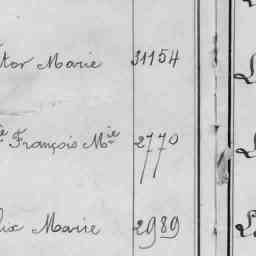 tor Marie 31154
ie François Mie 2770
lix Marie 2989